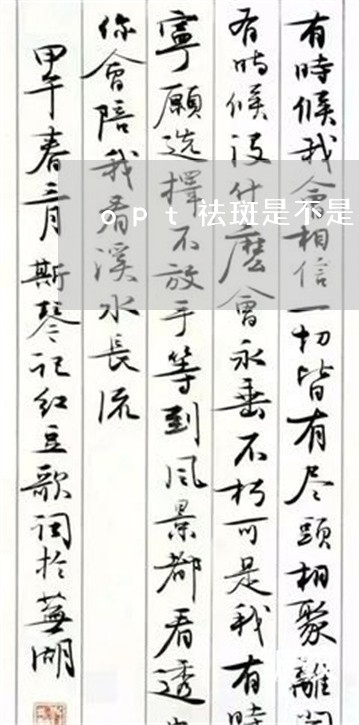 有時候我會相信一切皆有尽頭相聚離開
有時候没什麽會永垂不朽可是我有時
寧願选擇不放手等到风景都看透
你會陪我看溪水長流
甲午春三月斯琴记红豆歌词於蕪湖
opt祛斑是不是